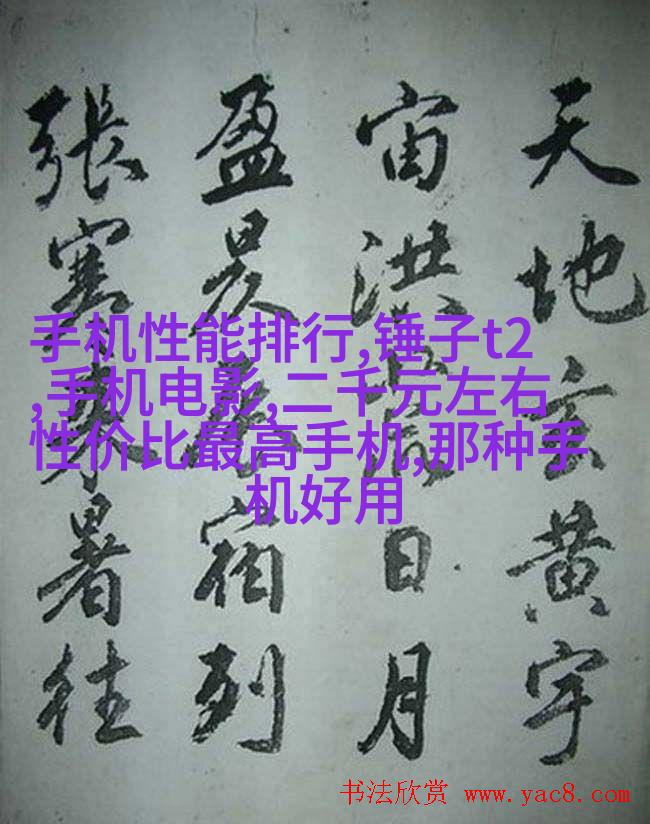 天地玄黄宇
宙洪荒日月
盈昃辰宿列
張寒来暑往
手机性能排行,锤子t2
,手机电影,二千元左右
性价比最高手机,那种手
机好用
书法欣赏 www.yac8.com